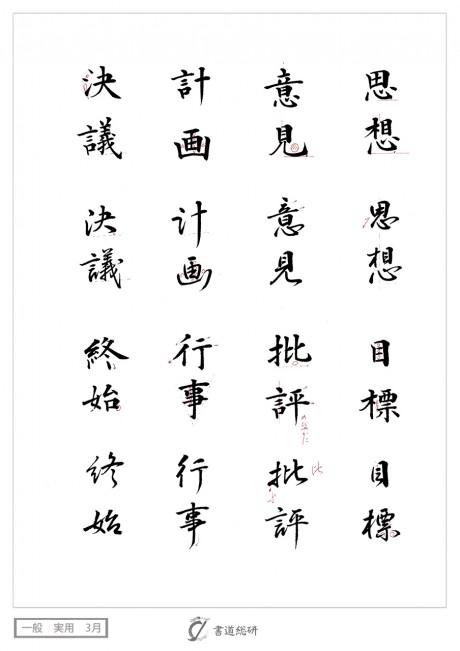 思想
思想
目標
目標
意見
意見
批評
批評
計画
計画
行事
行事
決議
決議
終始
終始
一般 実用 3月
書道総研